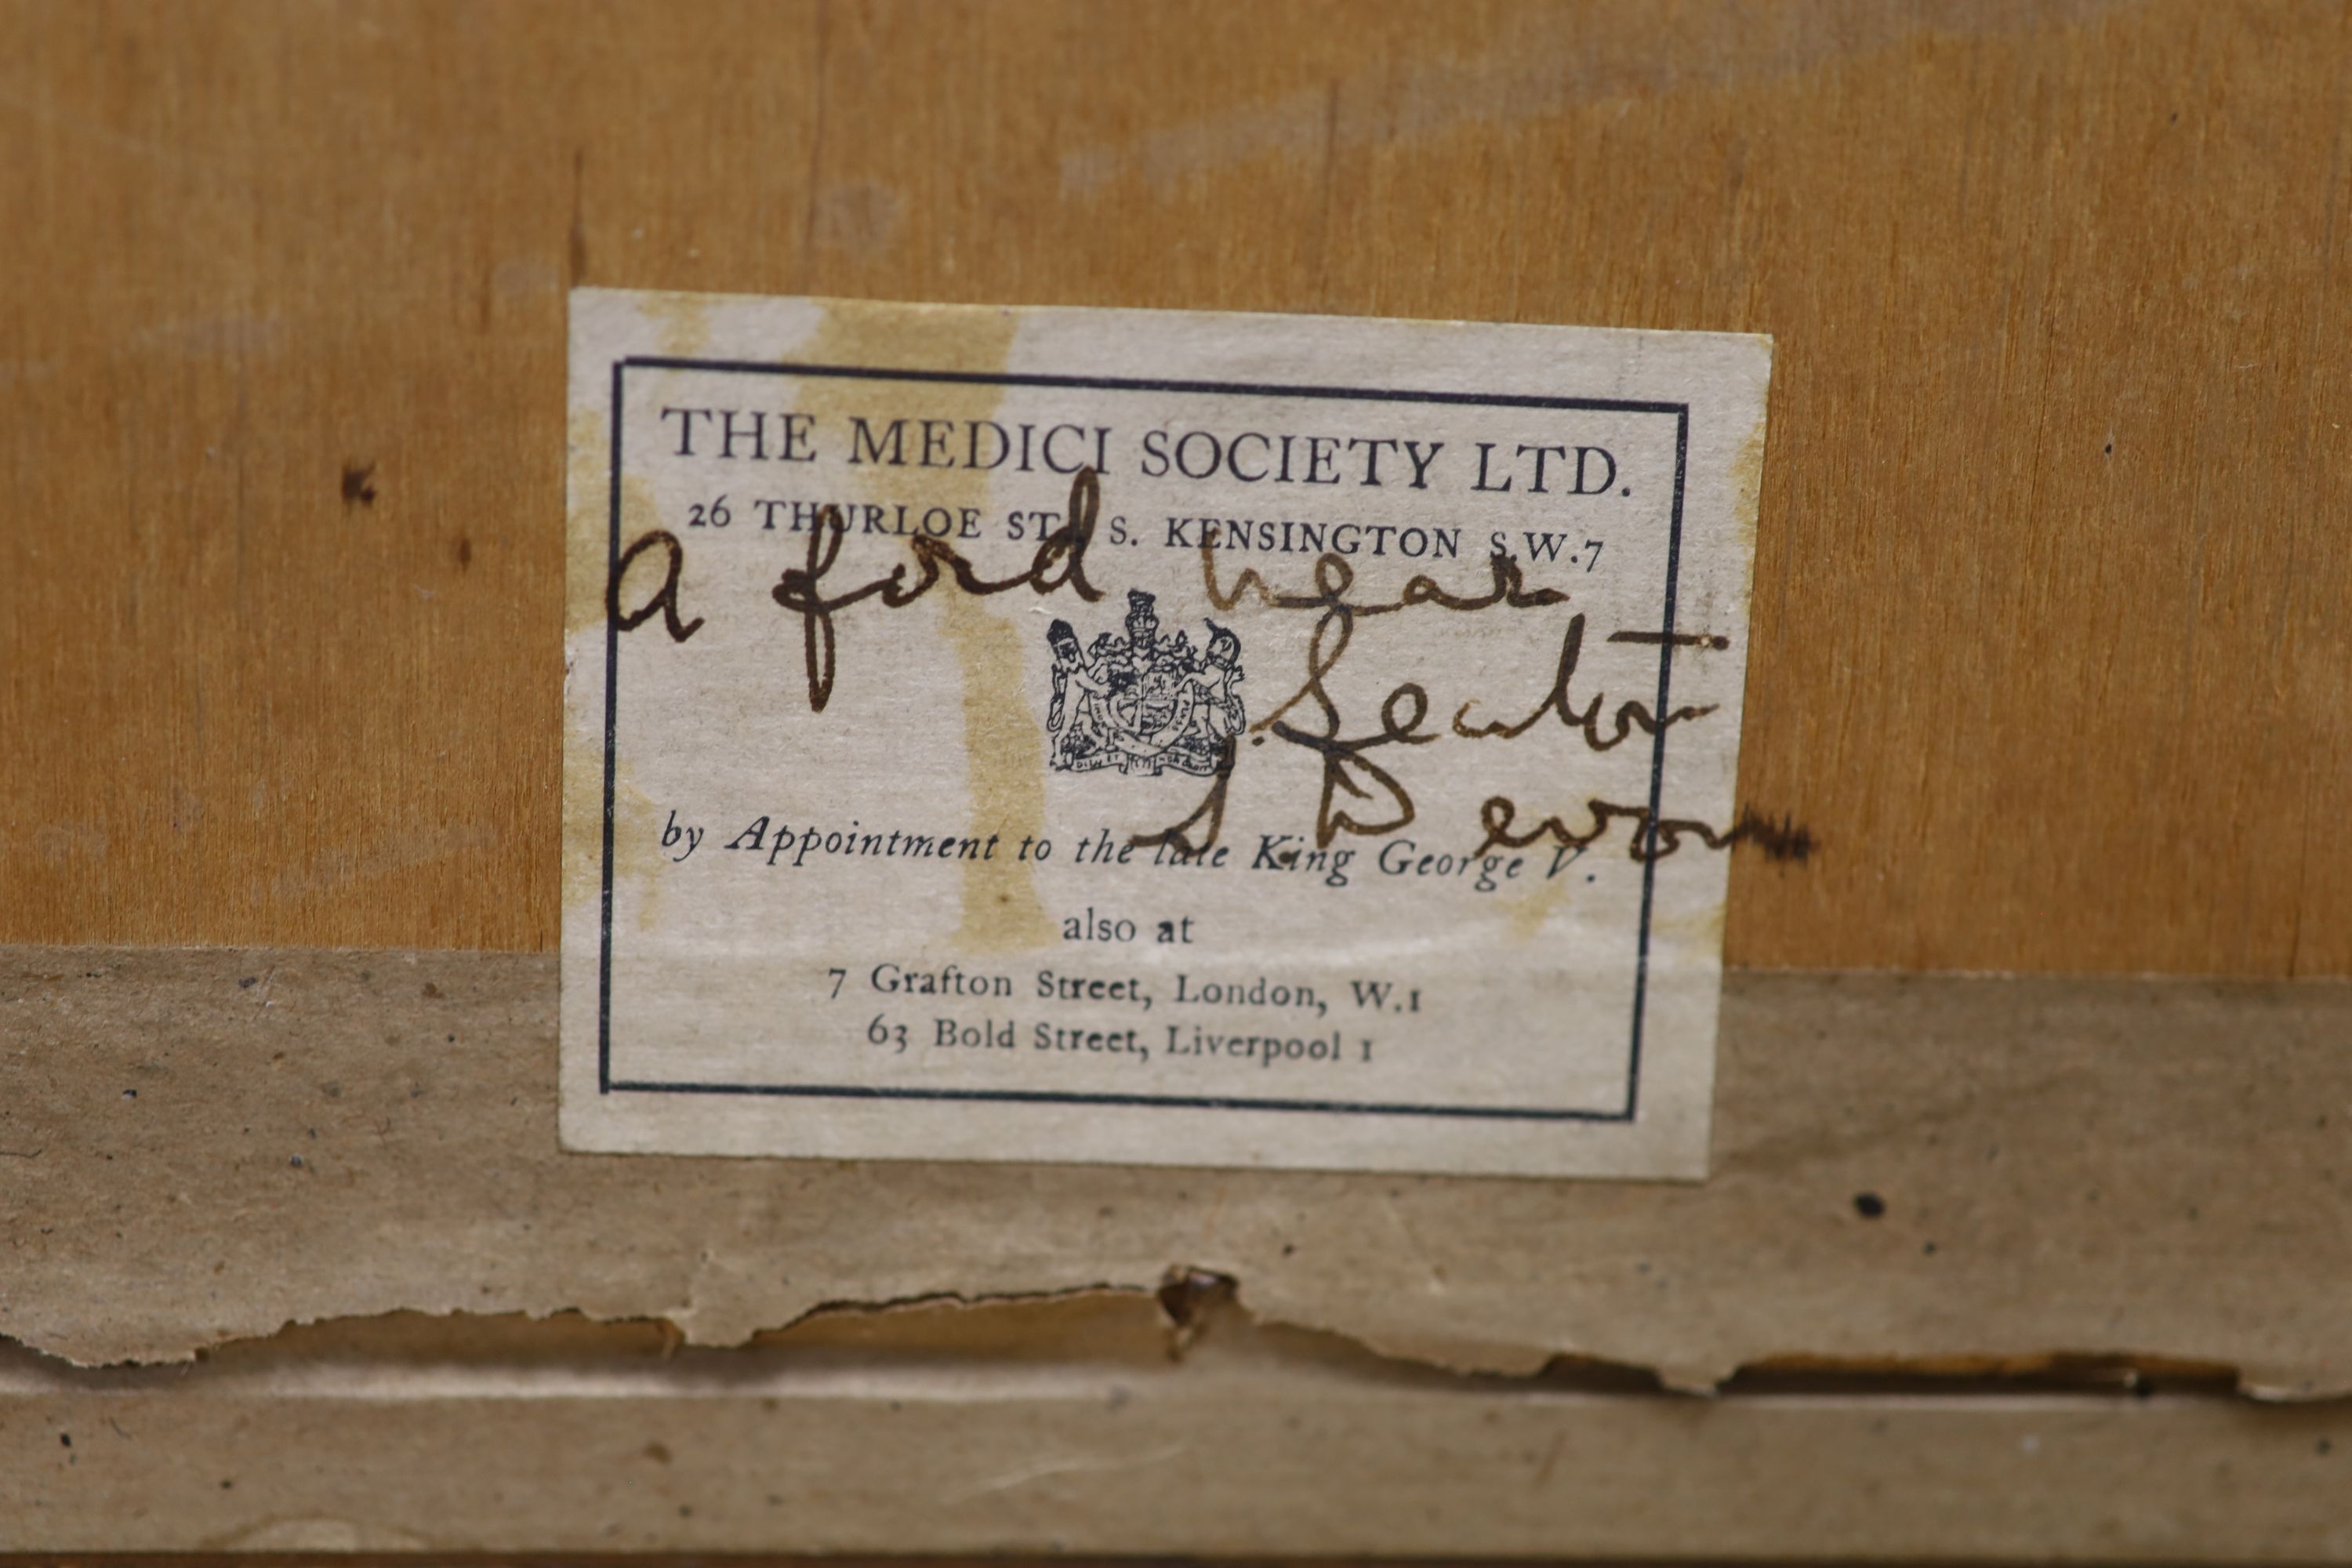 THE MEDICI SOCIETY LTD.
26 THURLOE ST. S. KENSINGTON S.W.7
a ford near
Seaton
S Devon
by Appointment to the late King George V.
also at
7 Grafton Street, London, W.1
63 Bold Street, Liverpool 1